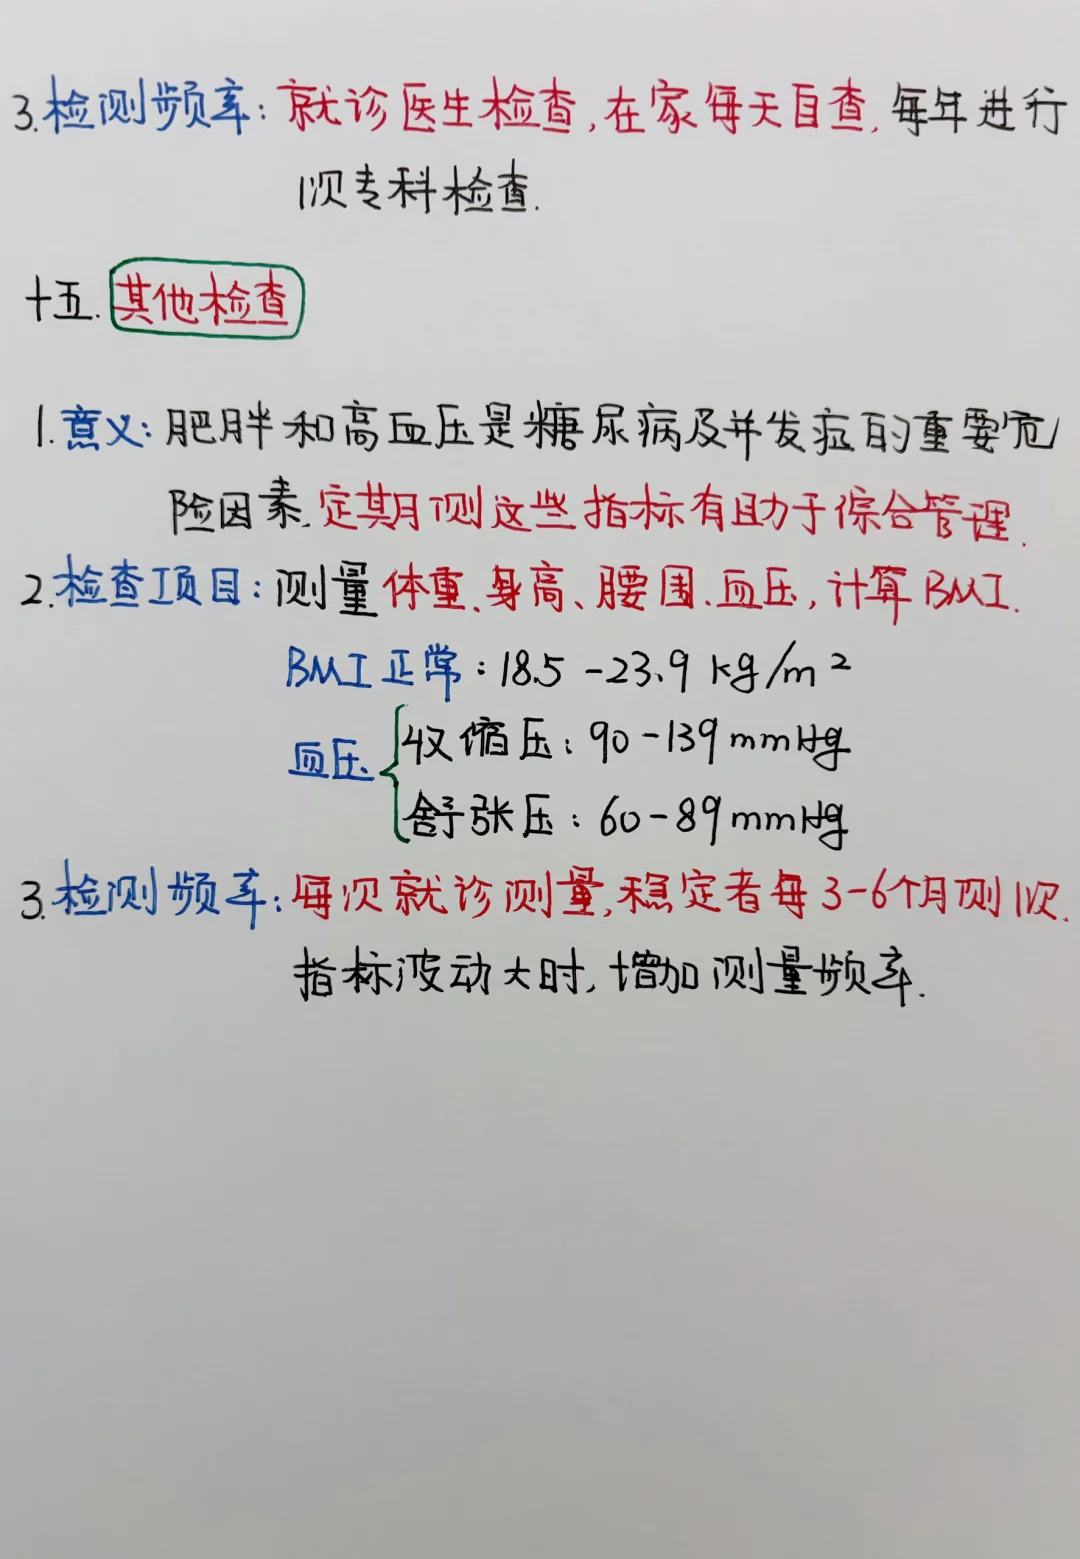 3.检测频率:就诊医生检查,在家每天自查,每年进行
1次专科检查.
十五.其他检查
1.意义:肥胖和高血压是糖尿病及并发症的重要危
险因素.定期测这些指标有助于综合管理.
2.检查项目:测量体重、身高、腰围、血压,计算BMI.
BMI正常:18.5-23.9 kg/m²
血压{收缩压:90-139mmHg
舒张压:60-89mmHg
3.检测频率:每次就诊测量,稳定者每3-6个月测1次.
指标波动大时,增加测量频率.